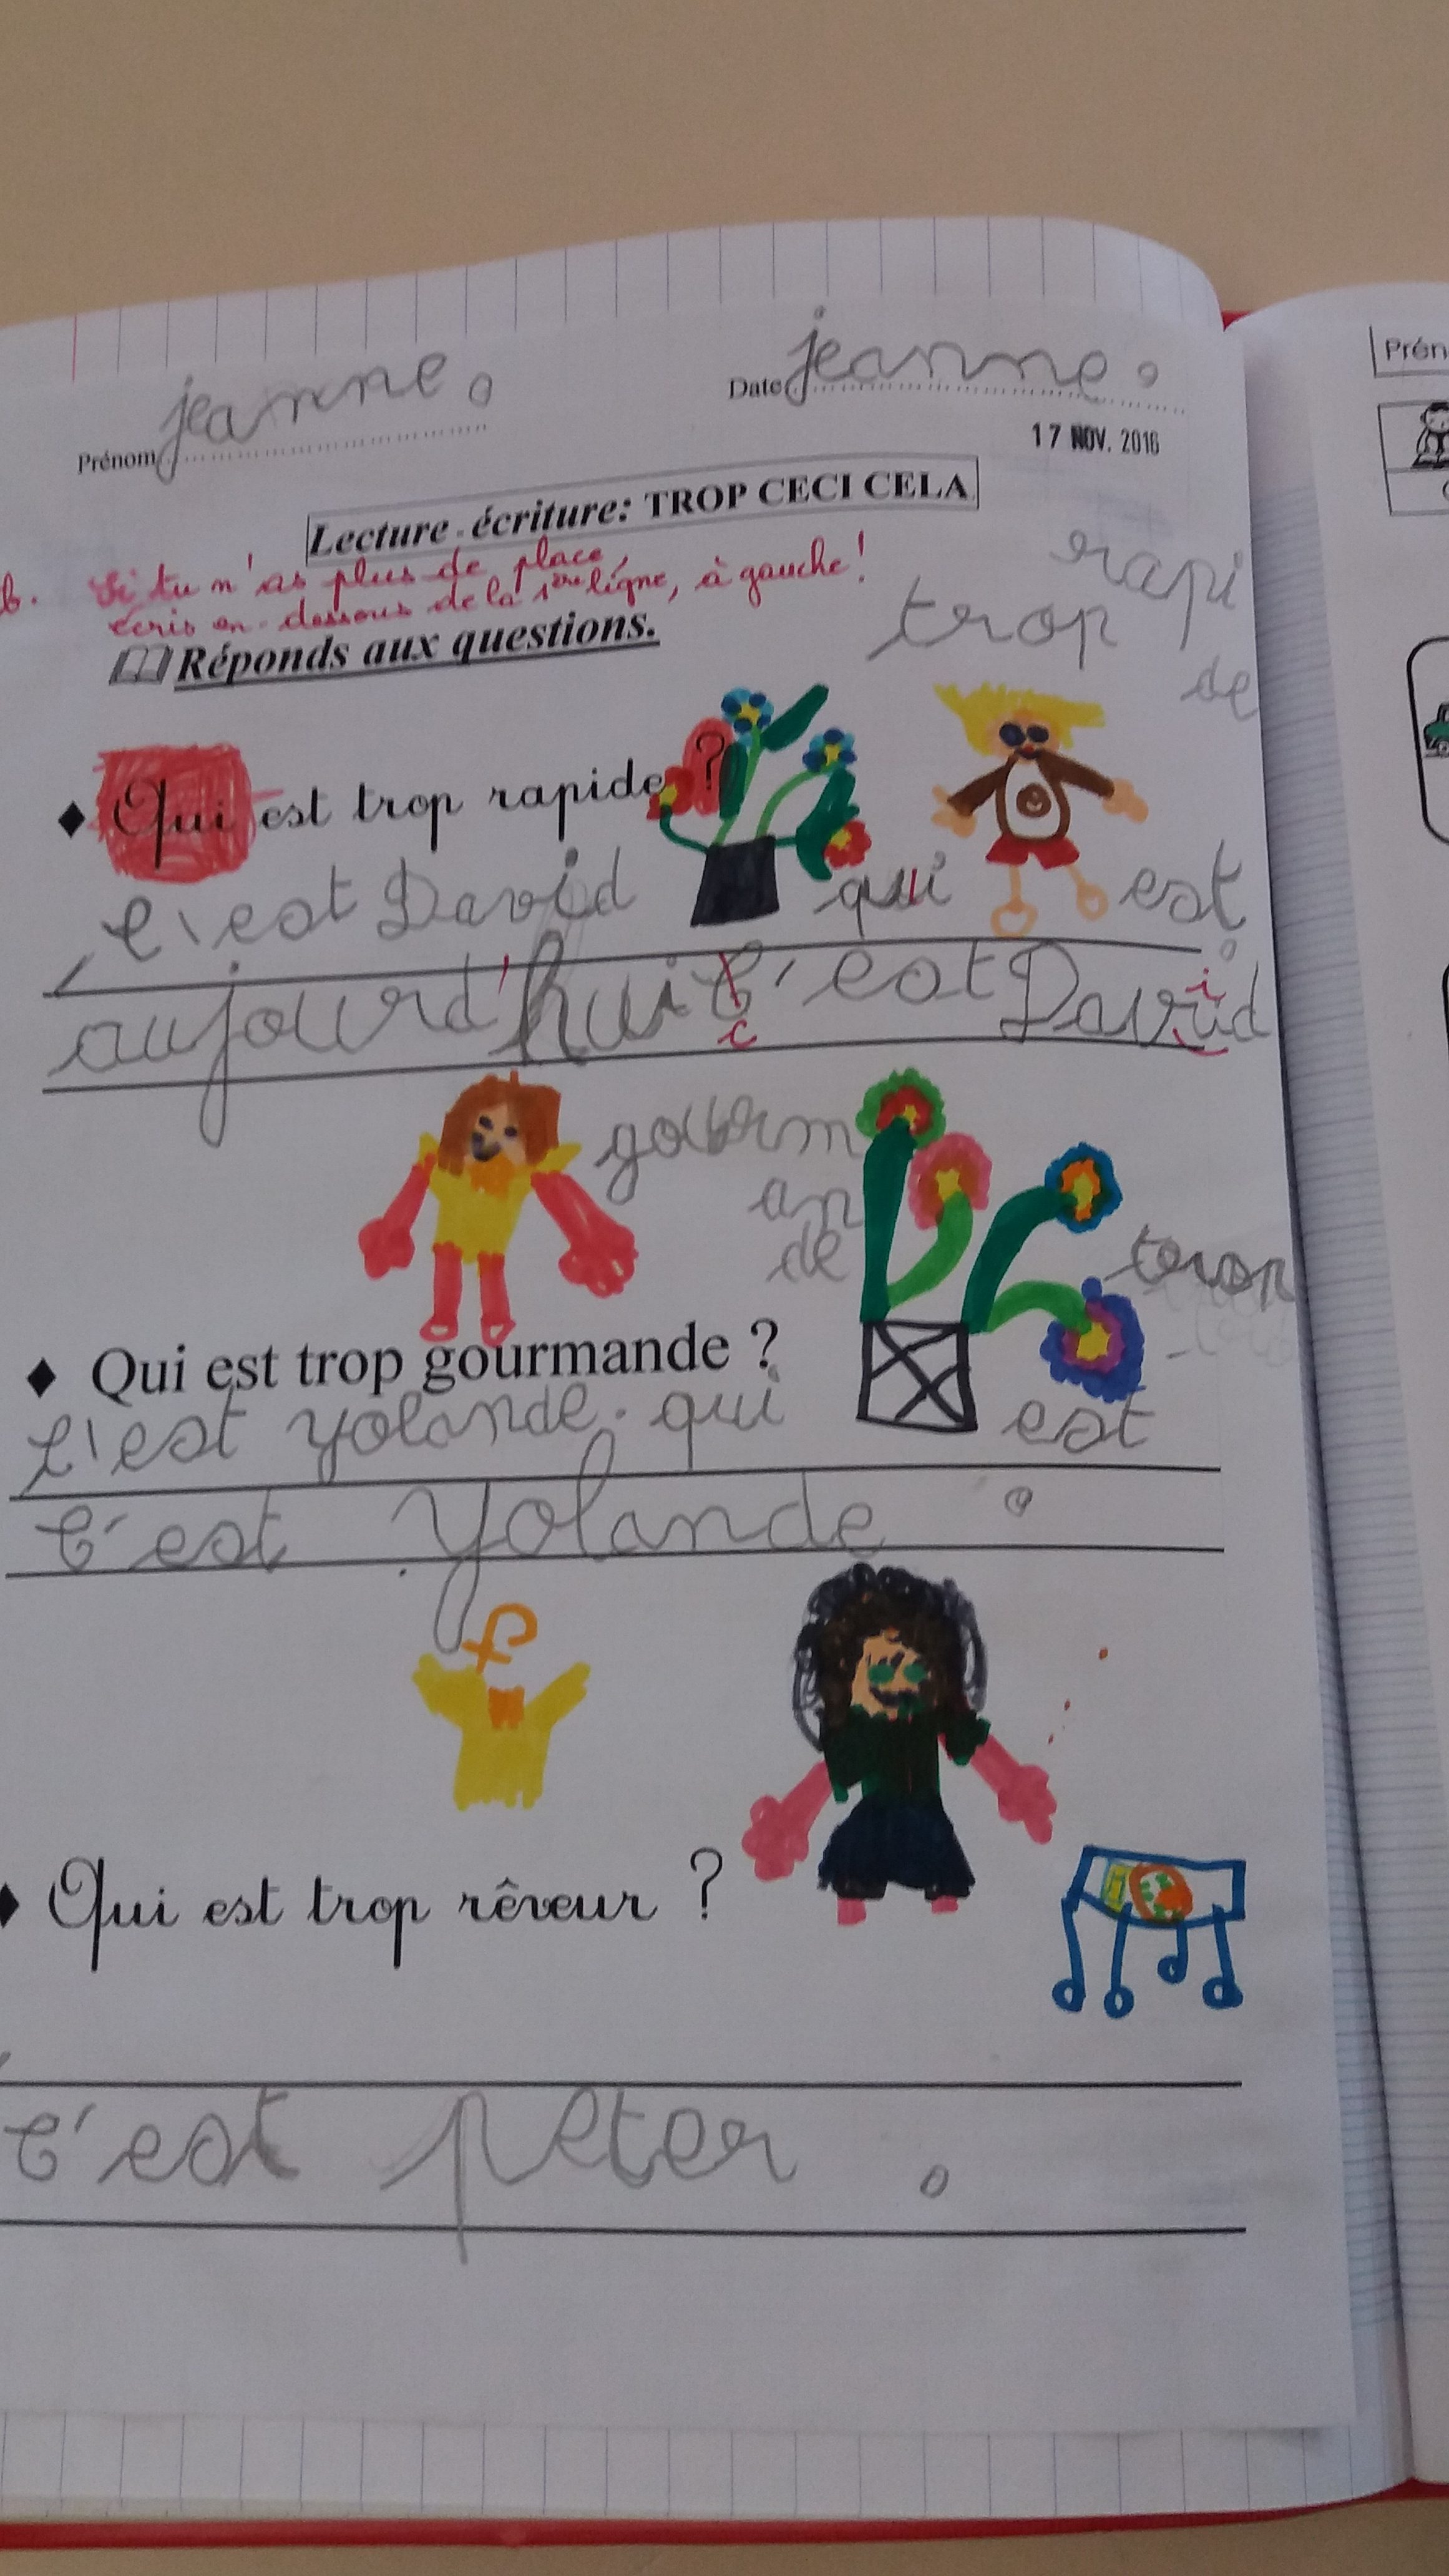 jeanne.
jeanne.
Prénom
Date
17 NOV. 2016
Lecture-écriture: TROP CECI CELA
Si tu n'as plus de place,
écris en-dessous de la 1ère ligne, à gauche!
rapi
trop
de
Réponds aux questions.
♦ Qui est trop rapide ?
c'est David qui est
aujourd'hui c'est David
gourm
an
de
trop
♦ Qui est trop gourmande ?
c'est yolande. qui est
c'est Yolande .
♦ Qui est trop rêveur ?
c'est peter .
Prén